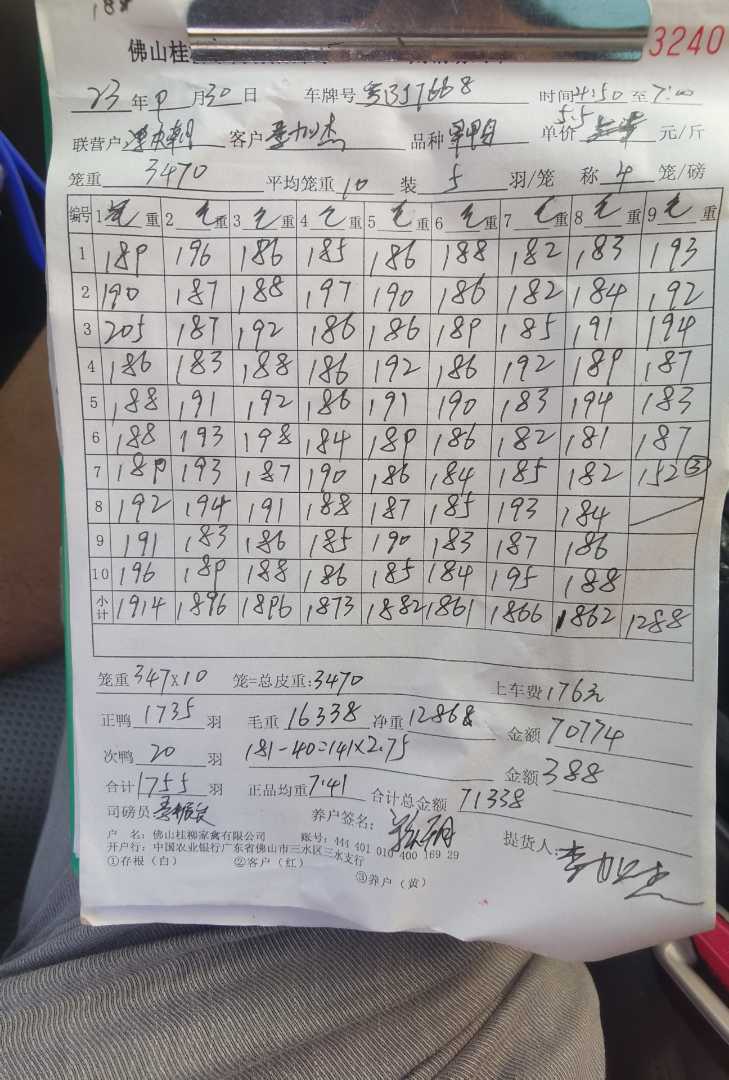 188
3240
佛山桂
23 年 9 月 30 日 车牌号 粤BJ7668 时间 4:50 至 7:00
联营户: 客户 李加杰 品种 单价 5.5 元/斤
笼重 3470 平均笼重 10 装 5 羽/笼 称 4 笼/磅
编号 1 毛 重 2 毛 重 3 毛 重 4 毛 重 5 毛 重 6 毛 重 7 毛 重 8 毛 重 9 毛 重
1 189 196 186 185 186 188 182 183 193
2 190 187 188 197 190 186 182 184 192
3 205 187 192 186 186 189 185 191 194
4 186 183 188 186 192 186 192 189 187
5 188 191 192 186 191 190 183 194 183
6 188 193 198 184 189 186 182 181 187
7 189 193 187 190 186 184 185 182 152③
8 192 194 191 188 187 185 193 184
9 191 183 186 185 190 183 187 186
10 196 189 188 186 185 184 195 188
小计 1914 1896 1896 1873 1882 1861 1866 1862 1288
笼重 347×10 笼=总皮重: 3470 上车费 1763
正鸭 1735 羽 毛重 16338 净重 12868 金额 70774
次鸭 20 羽 181-40=141×2.75 金额 388
合计 1755 羽 正品均重 7.41 合计总金额 71338
司磅员 养户签名: 提货人:
户 名: 佛山桂柳家禽有限公司 账号: 444 401 010 400 169 29
开户行: 中国农业银行广东省佛山市三水区三水支行
①存根（白） ②客户（红） ③养户（黄）